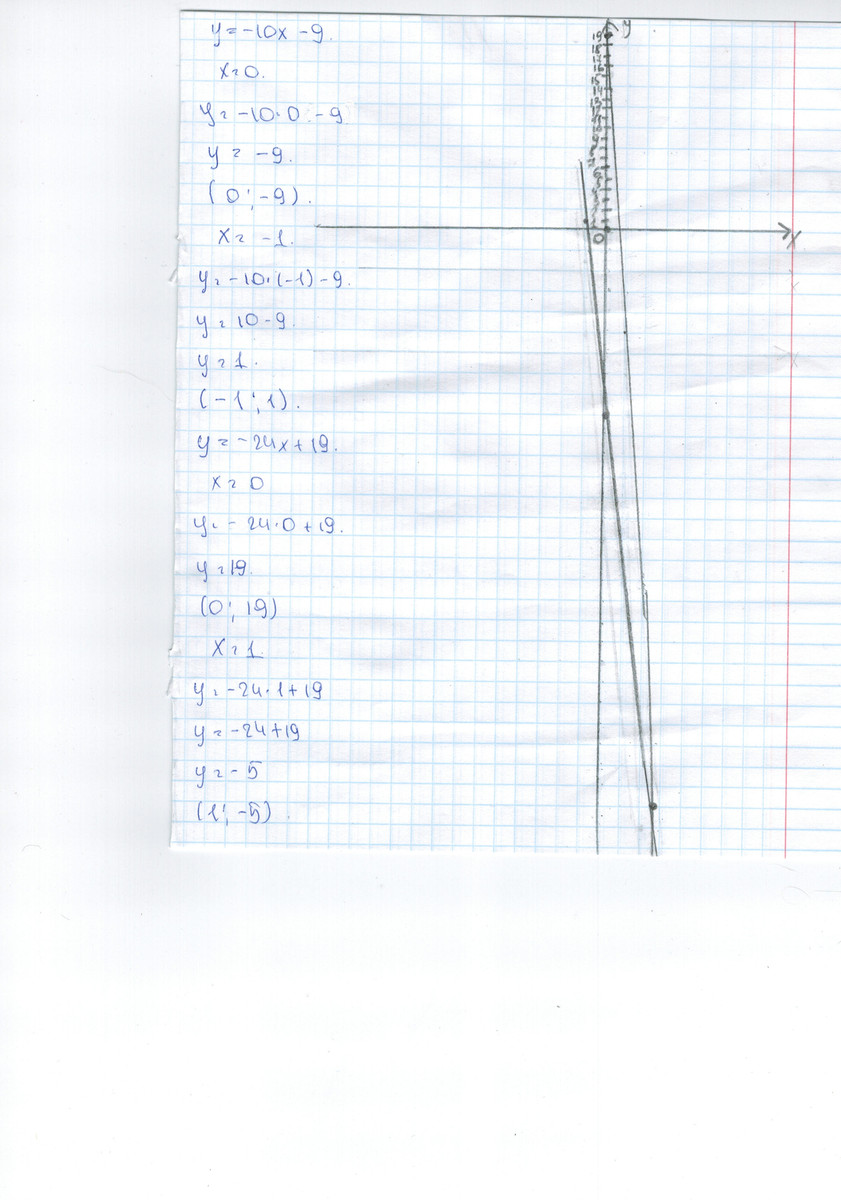 y = -10x - 9.
x = 0.
y = -10·0 - 9
y = -9.
(0; -9).
x = -1.
y = -10·(-1) - 9.
y = 10 - 9.
y = 1.
(-1; 1).
y = -24x + 19.
x = 0
y = -24·0 + 19.
y = 19.
(0; 19)
x = 1
y = -24·1 + 19
y = -24 + 19
y = -5
(1; -5)
y
19
18
17
16
15
14
13
0
x